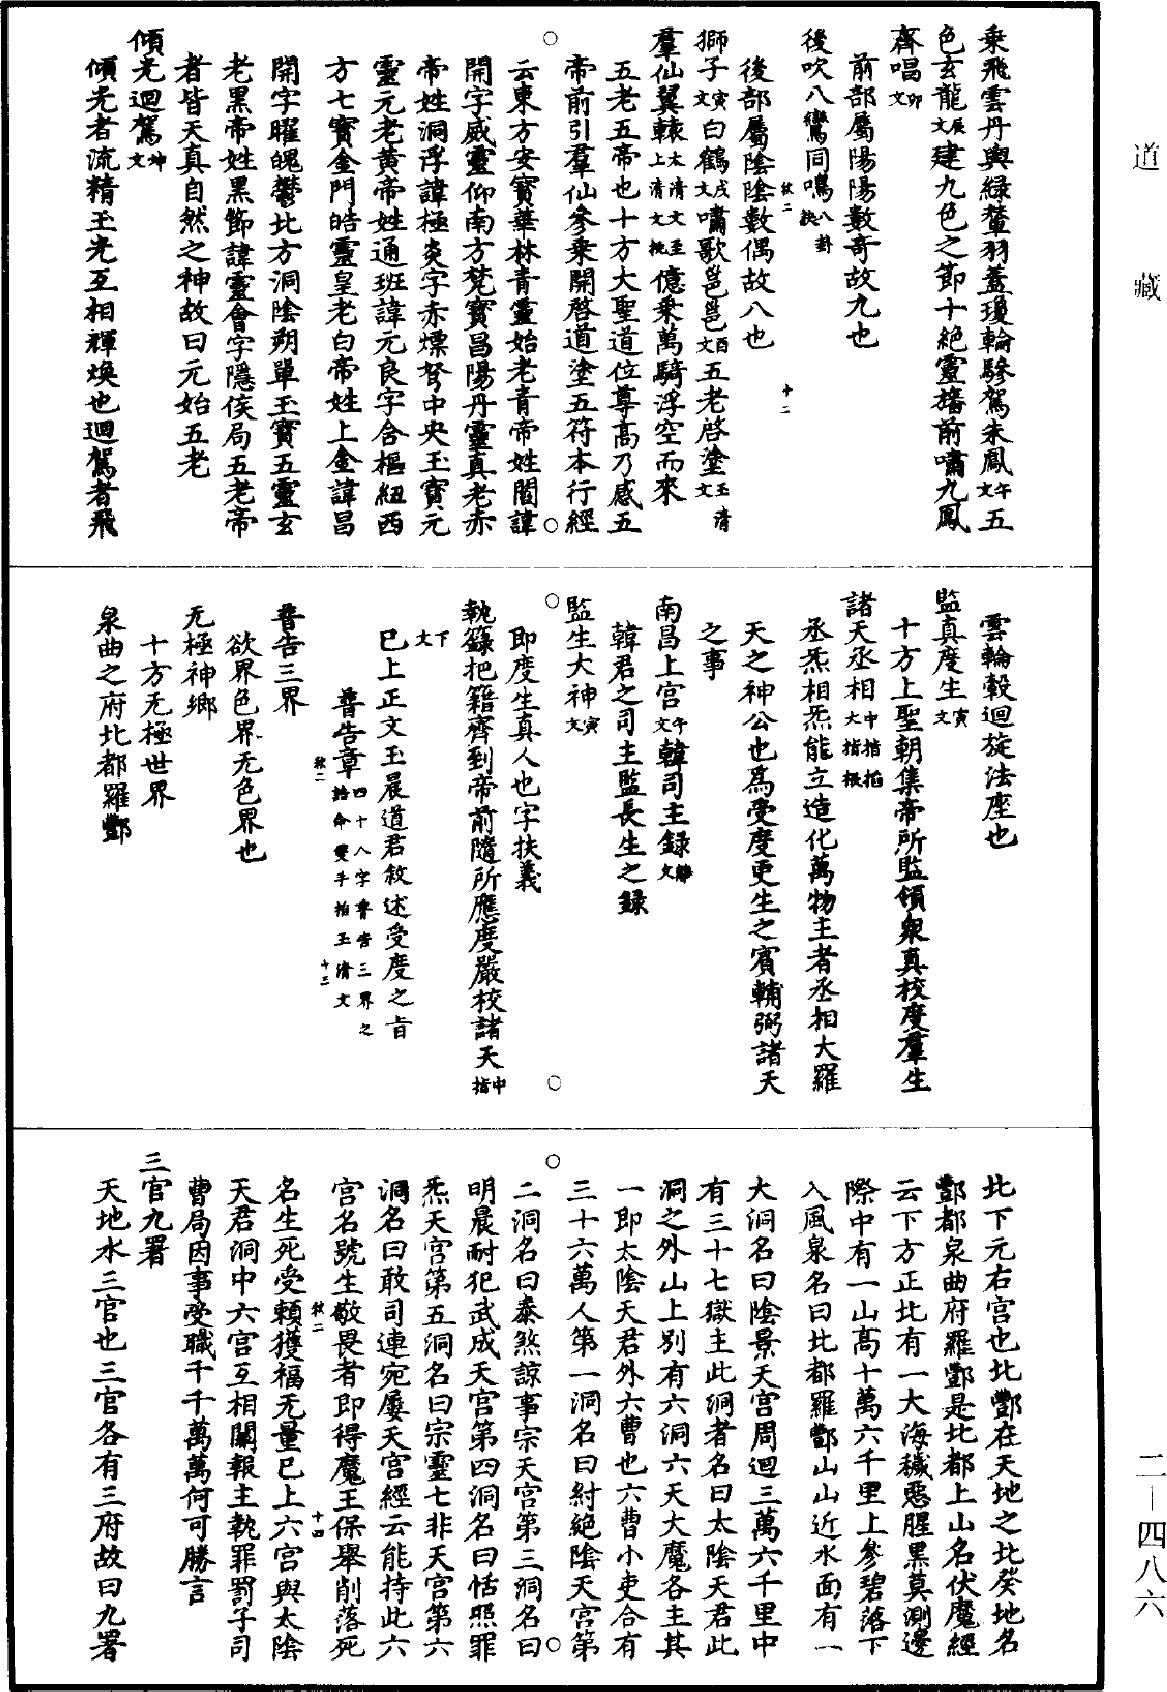 道藏
乘飛雲丹輿綠輦羽蓋瓊輪驂駕朱鳳午文五
色玄龍辰文建九色之節十絕靈旛前嘯九鳳
齊唱卯文
前部屬陽陽數奇故九也
後吹八鸞同鳴八卦訣
後部屬陰陰數偶故八也
獅子寅文白鶴戌文嘯歌邕邕酉文五老啓塗玉清文
羣仙翼轅太清文至上清文掐億乘萬騎浮空而來
五老五帝也十方大聖道位尊高乃感五
帝前引羣仙參乘開啓道塗五符本行經
云東方安寶華林青靈始老青帝姓閻諱
開字威靈仰南方梵寶昌陽丹靈真老赤
帝姓洞浮諱極炎字赤熛弩中央玉寶元
靈元老黃帝姓通班諱元良字含樞紐西
方七寶金門皓靈皇老白帝姓上金諱昌
開字曜魄鬱北方洞陰朔單玉寶五靈玄
老黑帝姓黑節諱靈會字隱侯局五老帝
者皆天真自然之神故曰元始五老
傾光迴駕坤文
傾光者流精玉光互相輝煥也迴駕者飛
雲輪轂迴旋法座也
監真度生寅文
十方上聖朝集帝所監領衆真校度羣生
諸天丞相中指掐大指根
丞炁相炁能立造化萬物主者丞相大羅
天之神公也爲受度更生之賓輔弼諸天
之事
南昌上宮午文韓司主錄離文
韓君之司主監長生之錄
監生大神寅文
即度生真人也字扶義
執籙把籍齊到帝前隨所應度嚴校諸天中指
下文
已上正文玉晨道君敘述受度之旨
普告章四十八字普告三界之誥命雙手掐玉清文
普告三界
欲界色界无色界也
无極神鄉
十方无極世界
泉曲之府北都羅酆
北下元右宮也北酆在天地之北癸地名
酆都泉曲府羅酆是北都上山名伏魔經
云下方正北有一大海穢惡腥黑莫測邊
際中有一山高十萬六千里上參碧落下
入風泉名曰北都羅酆山山近水面有一
大洞名曰陰景天宮周迴三萬六千里中
有三十七獄主此洞者名曰太陰天君此
洞之外山上別有六洞六天大魔各主其
一即太陰天君外六曹也六曹小吏合有
三十六萬人第一洞名曰紂絕陰天宮第
二洞名曰泰煞諒事宗天宮第三洞名曰
明晨耐犯武成天宮第四洞名曰恬照罪
炁天宮第五洞名曰宗靈七非天宮第六
洞名曰敢司連宛屢天宮經云能持此六
宮名號生敬畏者即得魔王保舉削落死
名生死受賴獲福无量已上六宮與太陰
天君洞中六宮互相關報主執罪罰子司
曹局因事受職千千萬萬何可勝言
三官九署
天地水三官也三官各有三府故曰九署
二—四八六